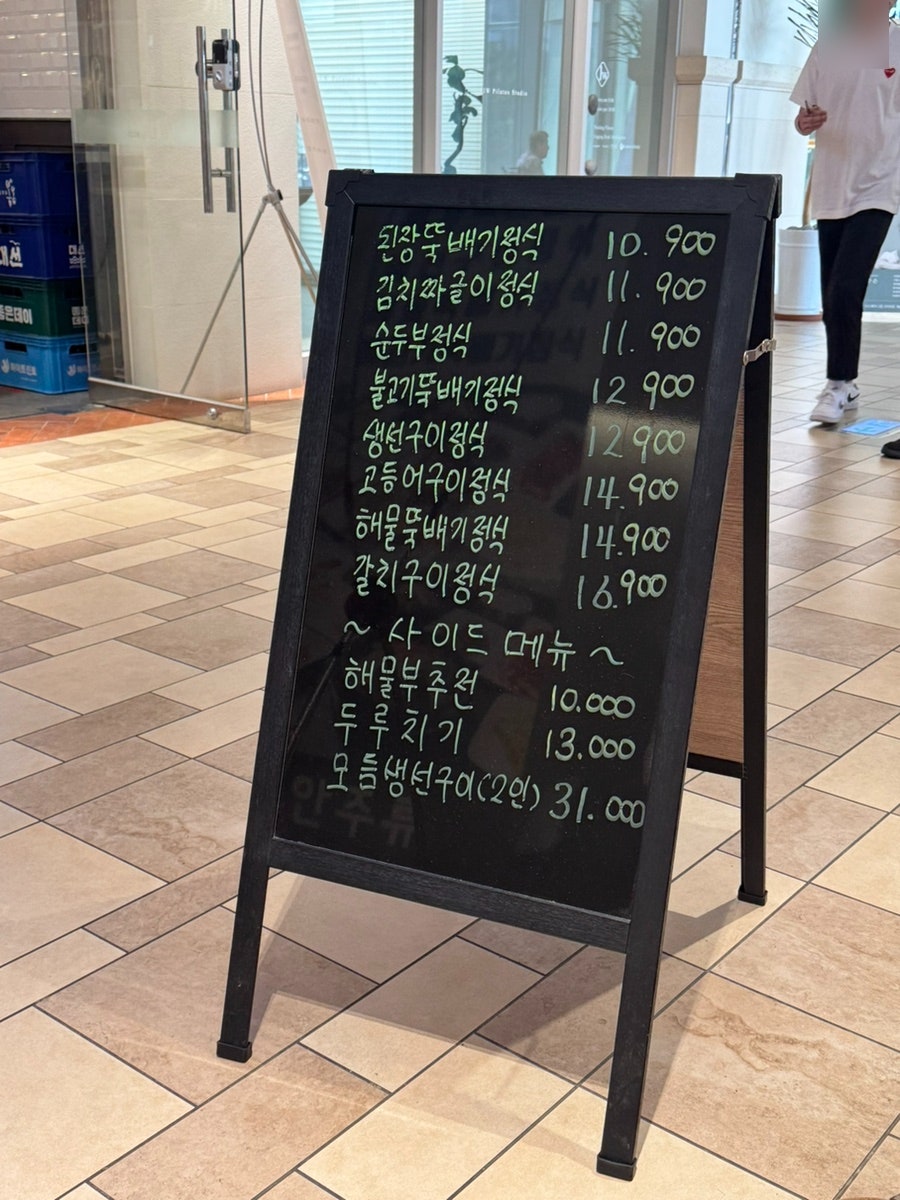 된장뚝배기정식 10.900
김치짜글이정식 11.900
순두부정식 11.900
불고기뚝배기정식 12 900
생선구이정식 12900
고등어구이정식 14.900
해물뚝배기정식 14.900
갈치구이정식 16.900
~ 사이드 메뉴 ~
해물부추전 10.000
두루치기 13.000
모듬생선구이(2인) 31.000
안주류
Pilates Studio
대선
좋은데이